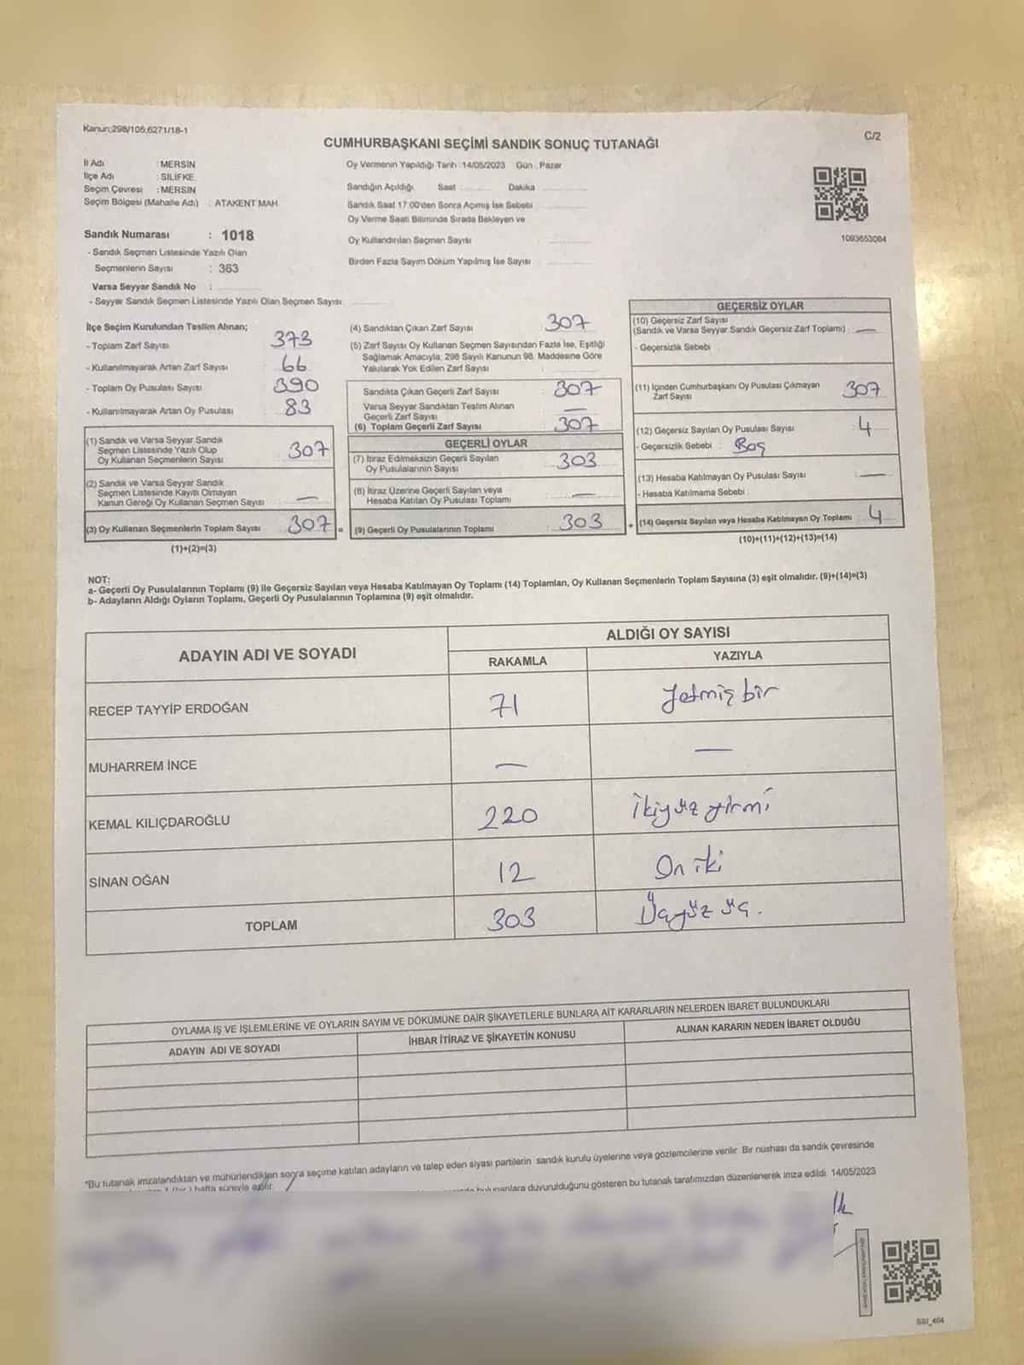 Kanun:298/105,6271/18-1
C/2
CUMHURBAŞKANI SEÇİMİ SANDIK SONUÇ TUTANAĞI
İl Adı : MERSİN
İlçe Adı : SİLİFKE
Seçim Çevresi : MERSİN
Seçim Bölgesi (Mahalle Adı) : ATAKENT MAH.
Sandık Numarası : 1018
- Sandık Seçmen Listesinde Yazılı Olan
Seçmenlerin Sayısı : 363
Varsa Seyyar Sandık No :
- Seyyar Sandık Seçmen Listesinde Yazılı Olan Seçmen Sayısı
Oy Vermenin Yapıldığı Tarih :14/05/2023 Gün : Pazar
Sandığın Açıldığı Saat Dakika
Sandık Saat 17:00'den Sonra Açmış İse Sebebi
Oy Verme Saati Bitiminde Sırada Bekleyen ve
Oy Kullandırılan Seçmen Sayısı
Birden Fazla Sayım Döküm Yapılmış İse Sayısı
1093653064
İlçe Seçim Kurulundan Teslim Alınan;
- Toplam Zarf Sayısı 373
- Kullanılmayarak Artan Zarf Sayısı 66
- Toplam Oy Pusulası Sayısı 390
- Kullanılmayarak Artan Oy Pusulası 83
(1) Sandık ve Varsa Seyyar Sandık
Seçmen Listesinde Yazılı Olup
Oy Kullanan Seçmenlerin Sayısı 307
(2) Sandık ve Varsa Seyyar Sandık
Seçmen Listesinde Kayıtlı Olmayan
Kanun Gereği Oy Kullanan Seçmen Sayısı —
(3) Oy Kullanan Seçmenlerin Toplam Sayısı 307
(1)+(2)=(3)
(4) Sandıktan Çıkan Zarf Sayısı 307
(5) Zarf Sayısı Oy Kullanan Seçmen Sayısından Fazla İse, Eşitliği
Sağlamak Amacıyla, 298 Sayılı Kanunun 98. Maddesine Göre
Yakılarak Yok Edilen Zarf Sayısı
Sandıkta Çıkan Geçerli Zarf Sayısı 307
Varsa Seyyar Sandıktan Teslim Alınan
Geçerli Zarf Sayısı —
(6) Toplam Geçerli Zarf Sayısı 307
GEÇERLİ OYLAR
(7) İtiraz Edilmeksizin Geçerli Sayılan
Oy Pusulalarının Sayısı 303
(8) İtiraz Üzerine Geçerli Sayılan veya
Hesaba Katılan Oy Pusulası Toplamı —
= (9) Geçerli Oy Pusulalarının Toplamı 303
GEÇERSİZ OYLAR
(10) Geçersiz Zarf Sayısı
(Sandık ve Varsa Seyyar Sandık Geçersiz Zarf Toplamı) —
- Geçersizlik Sebebi
(11) İçinden Cumhurbaşkanı Oy Pusulası Çıkmayan
Zarf Sayısı 307
(12) Geçersiz Sayılan Oy Pusulası Sayısı 4
- Geçersizlik Sebebi Boş
(13) Hesaba Katılmayan Oy Pusulası Sayısı —
- Hesaba Katılmama Sebebi
+ (14) Geçersiz Sayılan veya Hesaba Katılmayan Oy Toplamı 4
(10)+(11)+(12)+(13)=(14)
NOT:
a- Geçerli Oy Pusulalarının Toplamı (9) ile Geçersiz Sayılan veya Hesaba Katılmayan Oy Toplamı (14) Toplamları, Oy Kullanan Seçmenlerin Toplam Sayısına (3) eşit olmalıdır. (9)+(14)=(3)
b- Adayların Aldığı Oyların Toplamı, Geçerli Oy Pusulalarının Toplamına (9) eşit olmalıdır.
ADAYIN ADI VE SOYADI
ALDIĞI OY SAYISI
RAKAMLA YAZIYLA
RECEP TAYYİP ERDOĞAN 71 Yetmiş bir
MUHARREM İNCE — —
KEMAL KILIÇDAROĞLU 220 İkiyüz yirmi
SİNAN OĞAN 12 On iki
TOPLAM 303 Üçyüz üç.
OYLAMA İŞ VE İŞLEMLERİNE VE OYLARIN SAYIM VE DÖKÜMÜNE DAİR ŞİKAYETLERLE BUNLARA AİT KARARLARIN NELERDEN İBARET BULUNDUKLARI
ADAYIN ADI VE SOYADI İHBAR İTİRAZ VE ŞİKAYETİN KONUSU ALINAN KARARIN NEDEN İBARET OLDUĞU
"Bu tutanak imzalandıktan ve mühürlendikten sonra seçime katılan adayların ve talep eden siyasi partilerin sandık kurulu üyelerine veya gözlemcilerine verilir. Bir nüshası da sandık çevresinde
hafta süreyle asılır. duyurulduğunu gösteren bu tutanak tarafımızdan düzenlenerek imza edildi. 14/05/2023